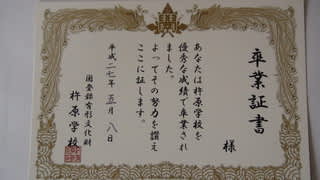 卒業証書
様
あなたは杵原学校を
優秀な成績で卒業され
ました。
よってその努力を讃え
ここに証します。
平成二七年 五月 八日
国登録有形文化財
杵原学校